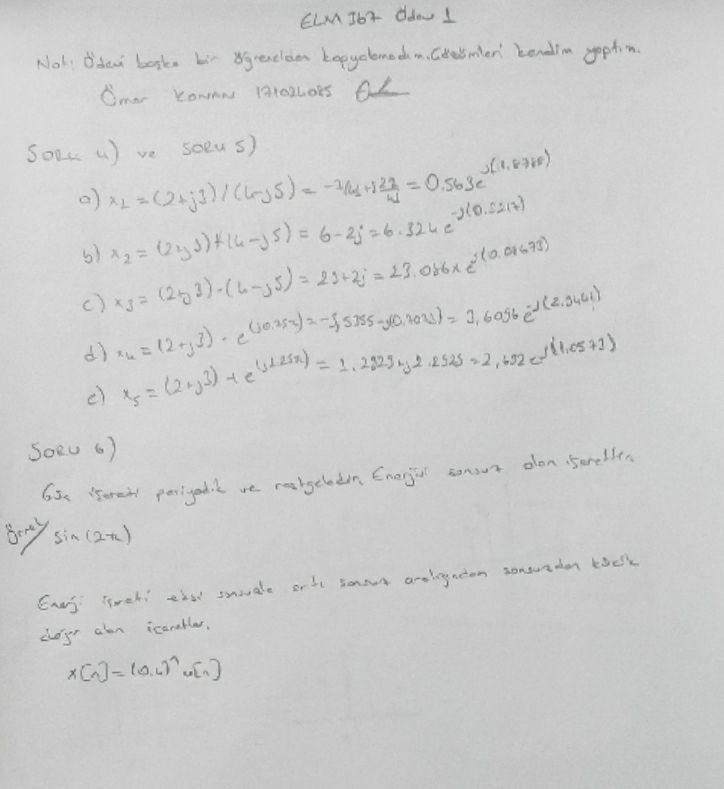 ELM 367 Ödev 1
Not: Ödevi başka bir öğrenciden kopyalamadım. Çözümleri kendim yaptım.
Ömer 171024085
SORU 4) ve SORU 5)
a) x₁ = (2+j3)/(4-j5) = = 0.563e^j(1.8788)
b) x₂ = (2+j3)+(4-j5) = 6-2j = 6.324e^-j(0.3217)
c) x₃ = (2+j3)·(4-j5) = 23+2j = 23.086 e^j(0.08673)
d) x₄ = (2+j3) · e^(j0.25π) = = 3,6056
e) x₅ = (2+j3) + e^(j1.25π) = 1.2929+j2.2929 = 2,632 e^j(1.0573)
SORU 6)
Güç işareti periyodik ve rastgeledir. Enerjisi sonsuz olan işaretler.
Örnek/ sin(2π)
Enerji işareti eksi sonsuzla artı sonsuz aralığından sonsuzdan küçük
değer alan işaretler.
x[n]=(0.4)ⁿ u[n]